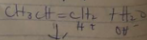 CH3CH=CH2 + H2O
H+
OH